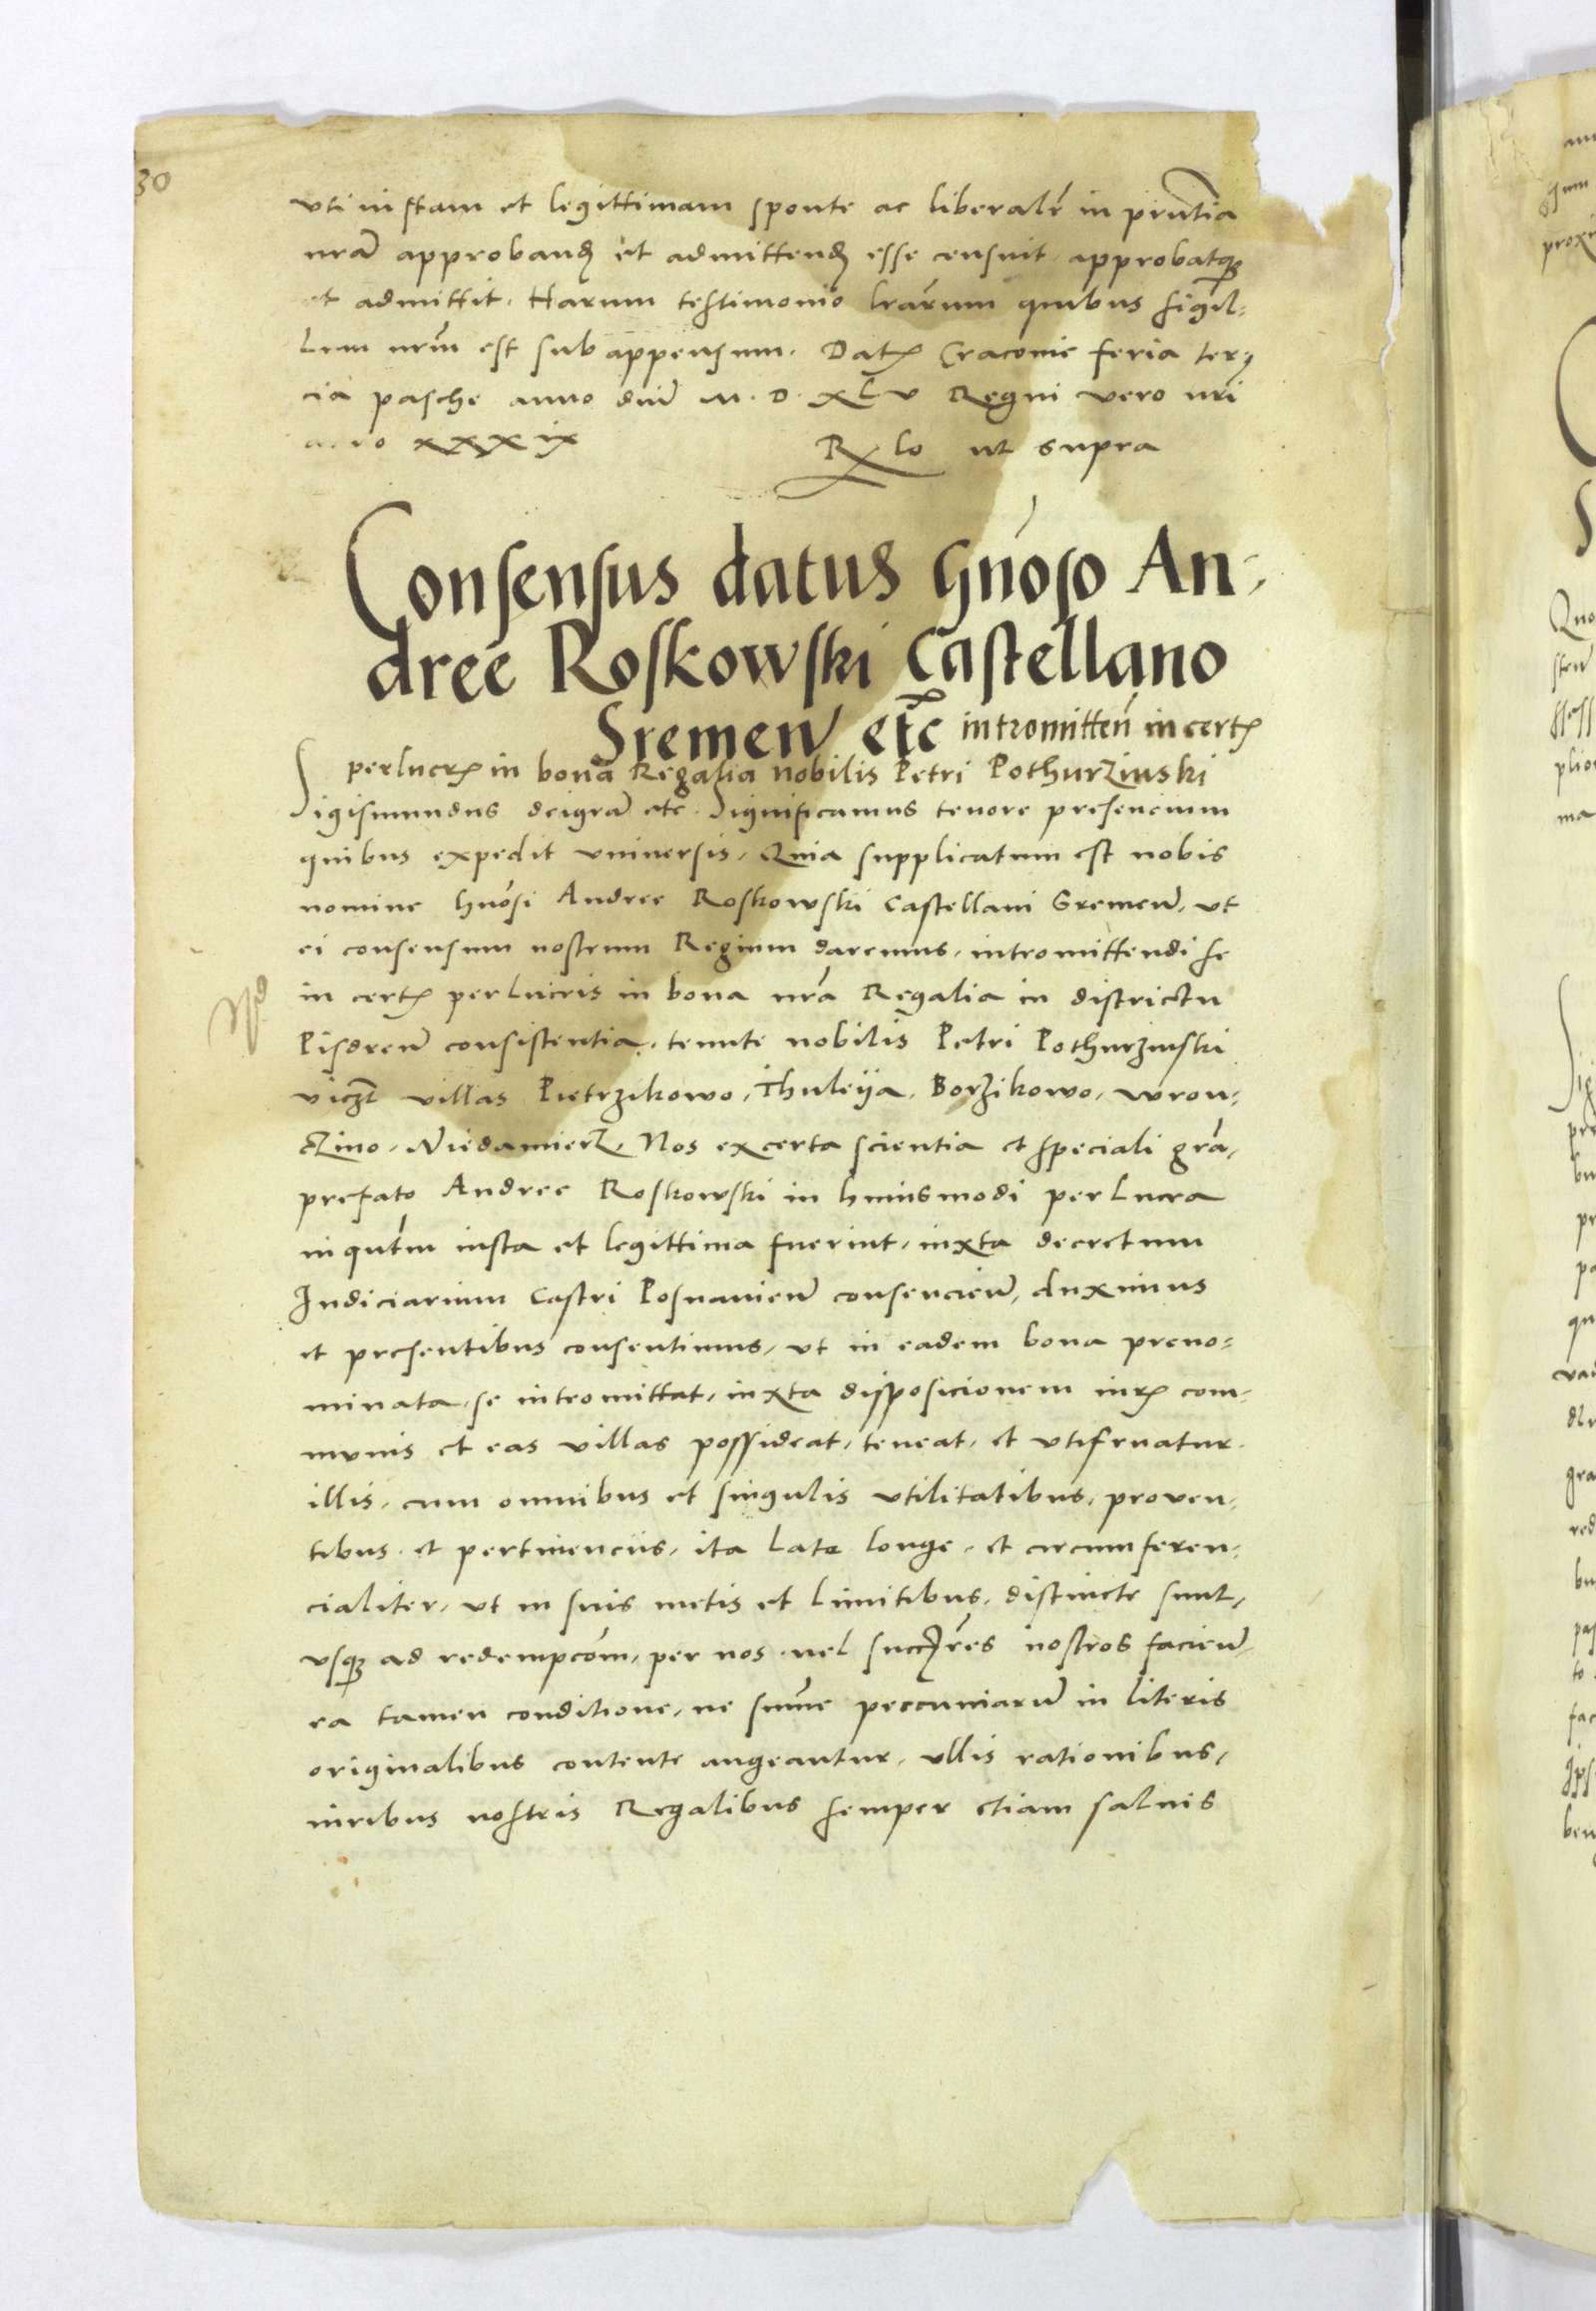 30
uti iustam et legittimam sponte ac liberalr̃ in pñtia
nrã approband et admittend esse censuit approbatq3
et admittit. Harum testimonio lrãrum quibus sigil=
lum nrm̃ est subappensum. Dat Cracovie feria ter=
cia pasche anno dnĩ M.D.XLV Regni vero nri
anno xxxix R lo ut supra
Consensus datus Gñoso An=
dree Roskowski Castellano
Sremeñ etc intromitteñ in cert
perlucr in bona Regalia nobilis Petri Pothurzinski
Sigismundus dei grã etc. Significamus tenore presencium
quibus expedit universis, Quia supplicatum est nobis
nomine Gnõsi Andree Roskowski Castellani Sremeñ, ut
ei consensum nostrum Regium daremus, intromittendi se
in cert perlucris in bona nrã Regalia in districtu
Pisdreñ consistentia, tenute nobilis Petri Pothurzinski
viczt villas Pietrzikowo, Thuleya, Borzikowo, wron=
czino, Niedamierz, Nos ex certa scientia et speciali grã,
prefato Andree Roskowski in huiusmodi perlucra
inqutm̃ iusta et legittima fuerint, iuxta decretum
Iudiciarium Castri Posnanieñ consencieñ, duximus
et presentibus consentimus, ut in eadem bona preno=
minata, se intromittat, iuxta disposicionem iur com=
munis et eas villas possideat, teneat, et utifruatur
illis, cum omnibus et singulis utilitatibus, proven=
tibus et pertinenciis, ita late longe, et circumferen=
cialiter, ut in suis metis et limitibus, distincte sunt,
usq3 ad redempcõm, per nos vel succrẽs nostros facieñ,
ea tamen conditione, ne summe peccuniarũ in literis
originalibus contente augeantur, ullis rationibus,
iuribus nostris Regalibus semper etiam salvis